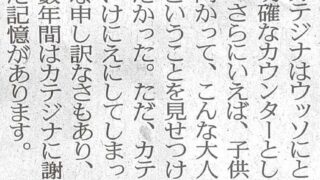 テジナはウッソにと
確なカウンターとし
さらにいえば、子供
向かって、こんな大人
ということを見せつけ
たかった。ただ、カテ
いけにえにしてしまっ
な申し訳なさもあり、
数年間はカテジナに謝
た記憶があります。